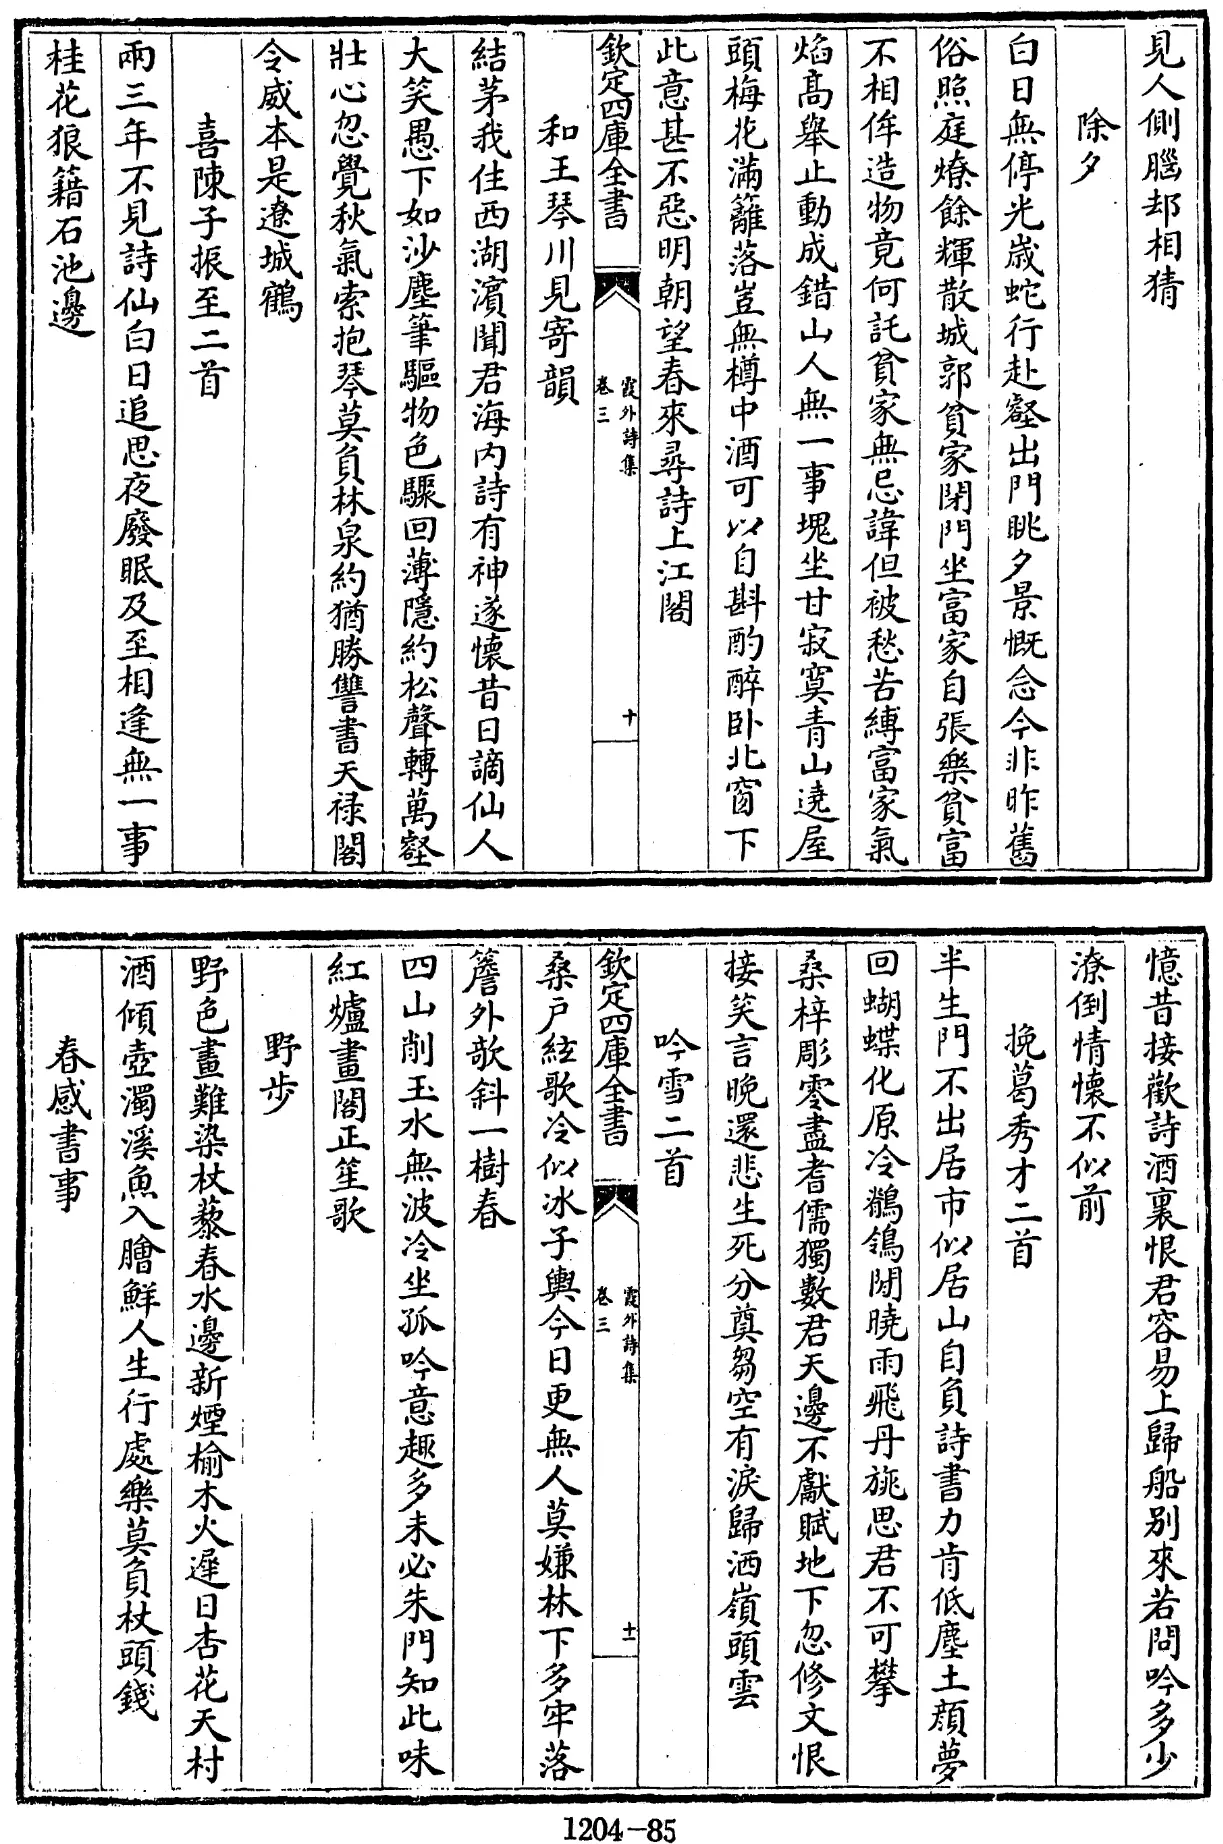 見人側腦却相猜
除夕
白日無停光歲蛇行赴壑出門眺夕景慨念今非昨舊
俗照庭燎餘輝散城郭貧家閉門坐富家自張樂貧富
不相侔造物竟何託貧家無忌諱但被愁苦縛富家氣
焰高舉止動成錯山人無一事塊坐甘寂寞青山遶屋
頭梅花滿籬落豈無樽中酒可以自斟酌醉卧北窗下
此意甚不惡明朝望春來尋詩上江閣
欽定四庫全書
霞外詩集
卷三
十
和王琴川見寄韻
結茅我住西湖濱聞君海内詩有神遂懷昔日謫仙人
大笑愚下如沙塵筆驅物色驟回薄隱約松聲轉萬壑
壯心忽覺秋氣索抱琴莫負林泉約猶勝讐書天禄閣
令威本是遼城鶴
喜陳子振至二首
兩三年不見詩仙白日追思夜廢眠及至相逢無一事
桂花狼籍石池邊
憶昔接歡詩酒裏恨君容易上歸船別來若問吟多少
潦倒情懷不似前
挽葛秀才二首
半生門不出居市似居山自負詩書力肯低塵土顔夢
回蝴蝶化原冷鶺鴒閒曉雨飛丹旐思君不可攀
桑梓彫零盡耆儒獨數君天邊不獻賦地下忽修文恨
接笑言晚還悲生死分奠芻空有淚歸洒嶺頭雲
吟雪二首
欽定四庫全書
霞外詩集
卷三
十一
桑戶絃歌冷似冰子輿今日更無人莫嫌林下多牢落
簷外欹斜一樹春
四山削玉水無波冷坐孤吟意趣多未必朱門知此味
紅爐畫閣正笙歌
野步
野色畫難染杖藜春水邊新煙榆木火遲日杏花天村
酒傾壺濁溪魚入膾鮮人生行處樂莫負杖頭錢
春感書事
1204-85